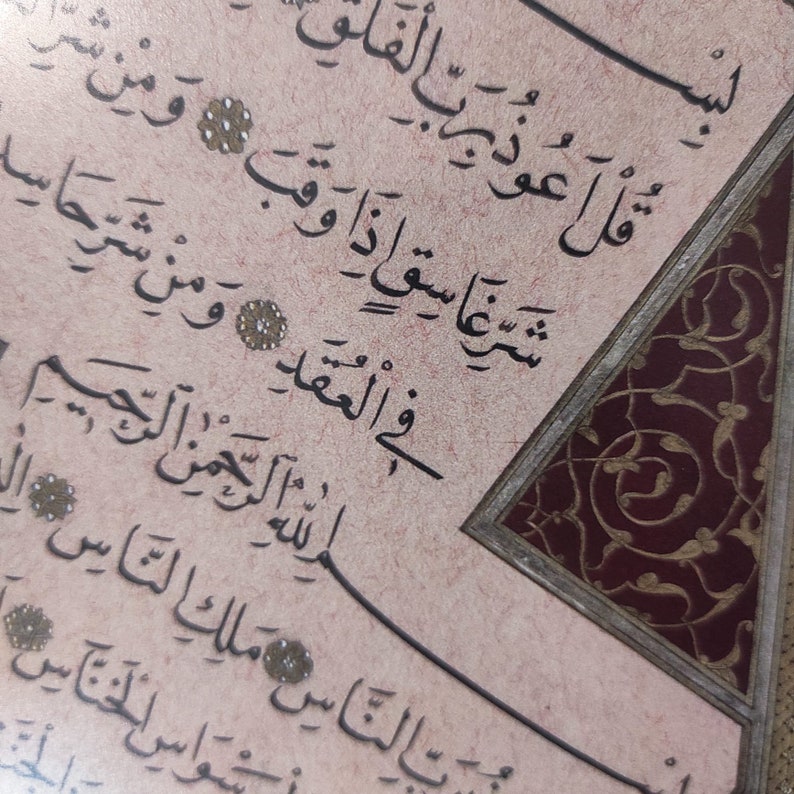 بِسْـ
قُلْ أَعُوذُ بِرَبِّ الْفَلَقِ
شَرِّ غَاسِقٍ إِذَا وَقَبَ وَمِنْ شَرِّ
فِي الْعُقَدِ وَمِنْ شَرِّ حَاسِدٍ
بِسْمِ اللّٰهِ الرَّحْمٰنِ الرَّحِيمِ
بِرَبِّ النَّاسِ مَلِكِ النَّاسِ
الْوَسْوَاسِ الْخَنَّاسِ